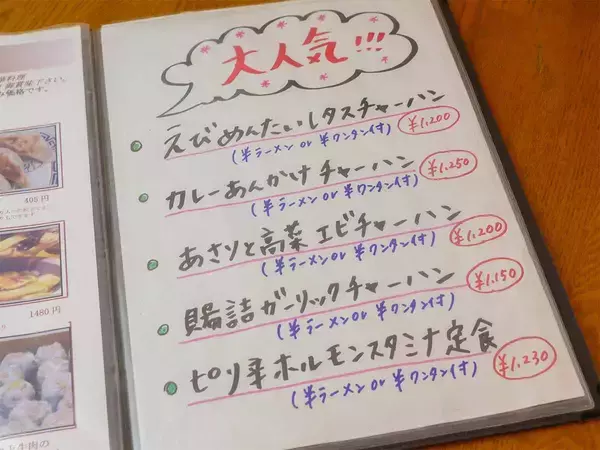 大人気!!!
えびめんたいレタスチャーハン ¥1.200
(半ラーメン or 半ワンタン付)
カレーあんかけチャーハン ¥1.250
(半ラーメン or 半ワンタン付)
あさりと高菜エビチャーハン ¥1.200
(半ラーメン or 半ワンタン付)
腸詰ガーリックチャーハン ¥1.150
(半ラーメン or 半ワンタン付)
ピリ辛ホルモンスタミナ定食 ¥1.230
(半ラーメン or 半ワンタン付)
408円
1480円